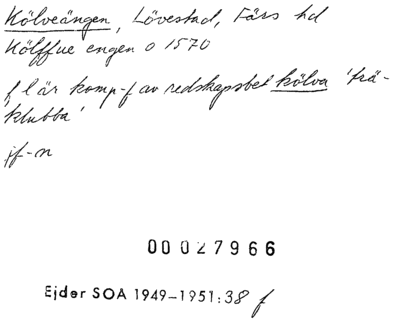 Kölveängen, Lövestad, Färs hd
Kölffue engen o 1570
fl är komp-f av redskapsbet kölva 'trä-
klubba'
jf-n
00027966
Ejder SOA 1949-1951:38 f